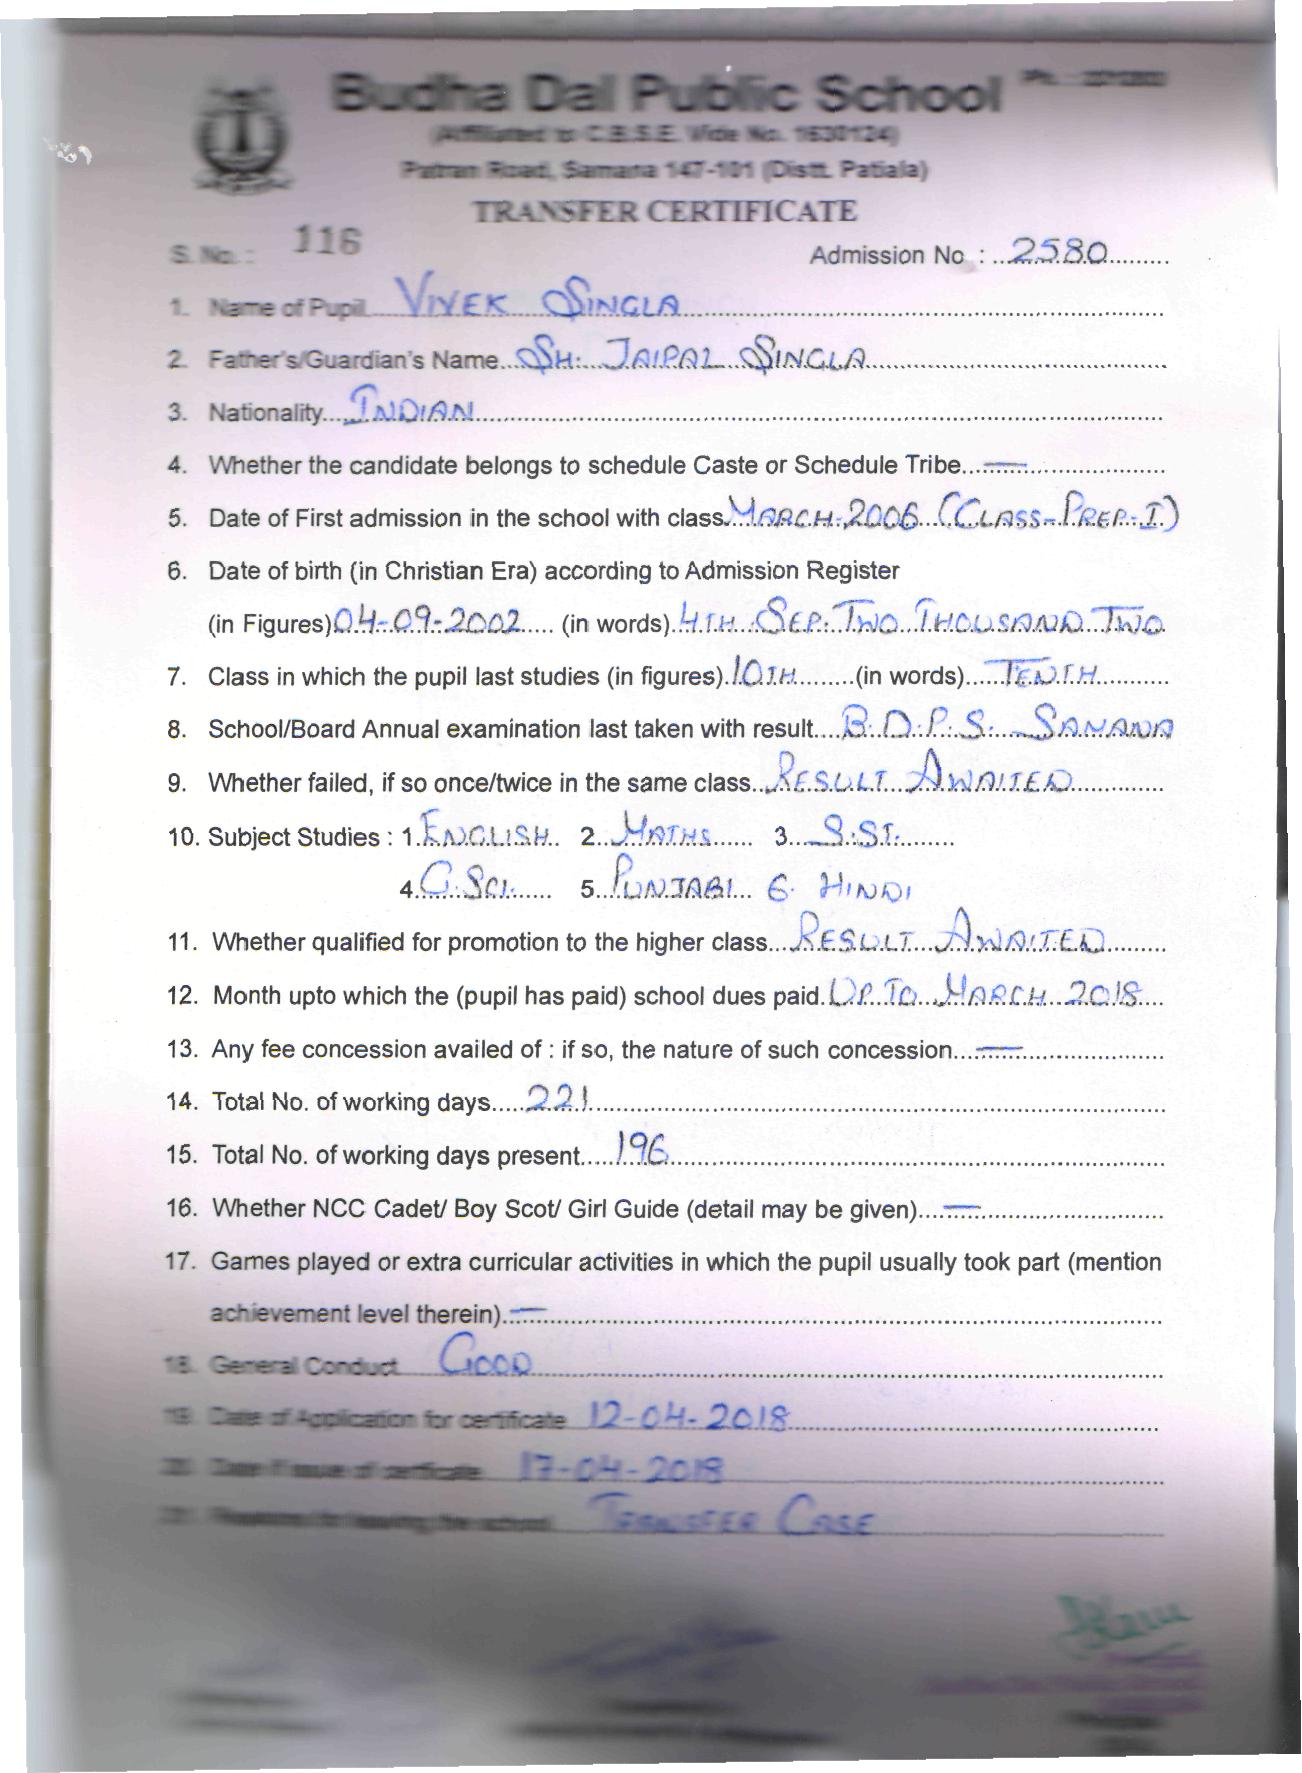 Budha Dal Public School
(Affiliated to C.B.S.E. Vide No. 1630124)
Patran Road, Samana 147-101 (Distt. Patiala)
TRANSFER CERTIFICATE
S. No. : 116 Admission No. : 2580
1. Name of Pupil VIVEK SINGLA
2. Father's/Guardian's Name SH. JAIPAL SINGLA
3. Nationality INDIAN
4. Whether the candidate belongs to schedule Caste or Schedule Tribe —
5. Date of First admission in the school with class MARCH-2006 (CLASS-PREP-I)
6. Date of birth (in Christian Era) according to Admission Register
(in Figures) 04-09-2002 (in words) 4TH SEP. TWO THOUSAND TWO
7. Class in which the pupil last studies (in figures) 10TH (in words) TENTH
8. School/Board Annual examination last taken with result B.D.P.S. SAMANA
9. Whether failed, if so once/twice in the same class RESULT AWAITED
10. Subject Studies : 1. ENGLISH 2. MATHS 3. S.ST.
4. G.SCI. 5. PUNJABI 6. HINDI
11. Whether qualified for promotion to the higher class RESULT AWAITED
12. Month upto which the (pupil has paid) school dues paid UP TO MARCH 2018
13. Any fee concession availed of : if so, the nature of such concession —
14. Total No. of working days 221
15. Total No. of working days present 196
16. Whether NCC Cadet/ Boy Scot/ Girl Guide (detail may be given) —
17. Games played or extra curricular activities in which the pupil usually took part (mention
achievement level therein) —
18. General Conduct GOOD
19. Date of Application for certificate 12-04-2018
20. Date if issue of certificate 17-04-2018
21. Reasons for leaving the school TRANSFER CASE